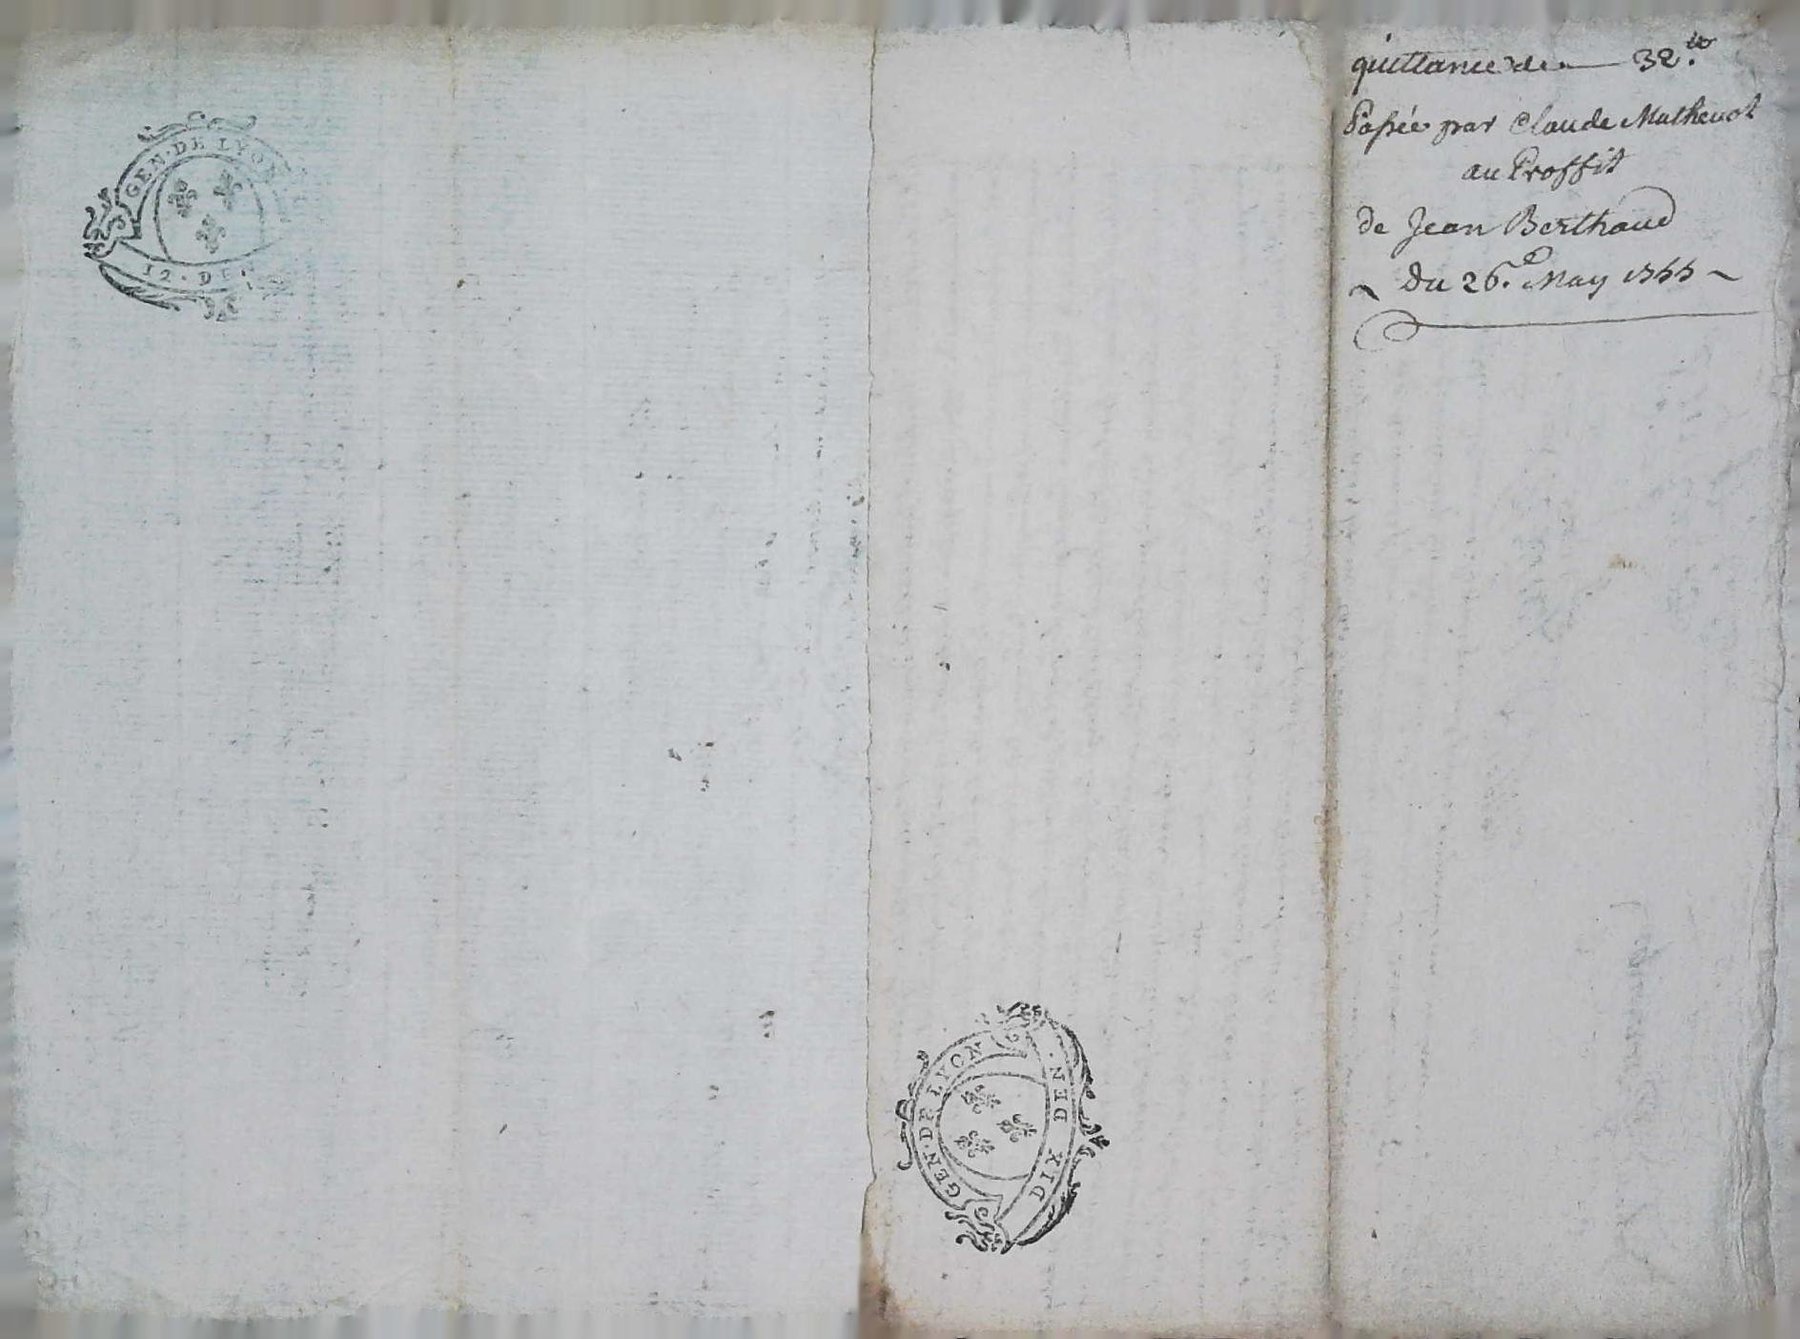 GEN · DE LYON
12 · DEN
quittance de 32.tt
Passée par Claude Mathevot
au Proffit
de Jean Berthaud
~ Du 26.e May 1755 ~
GEN · DE LYON
DIX DEN ·